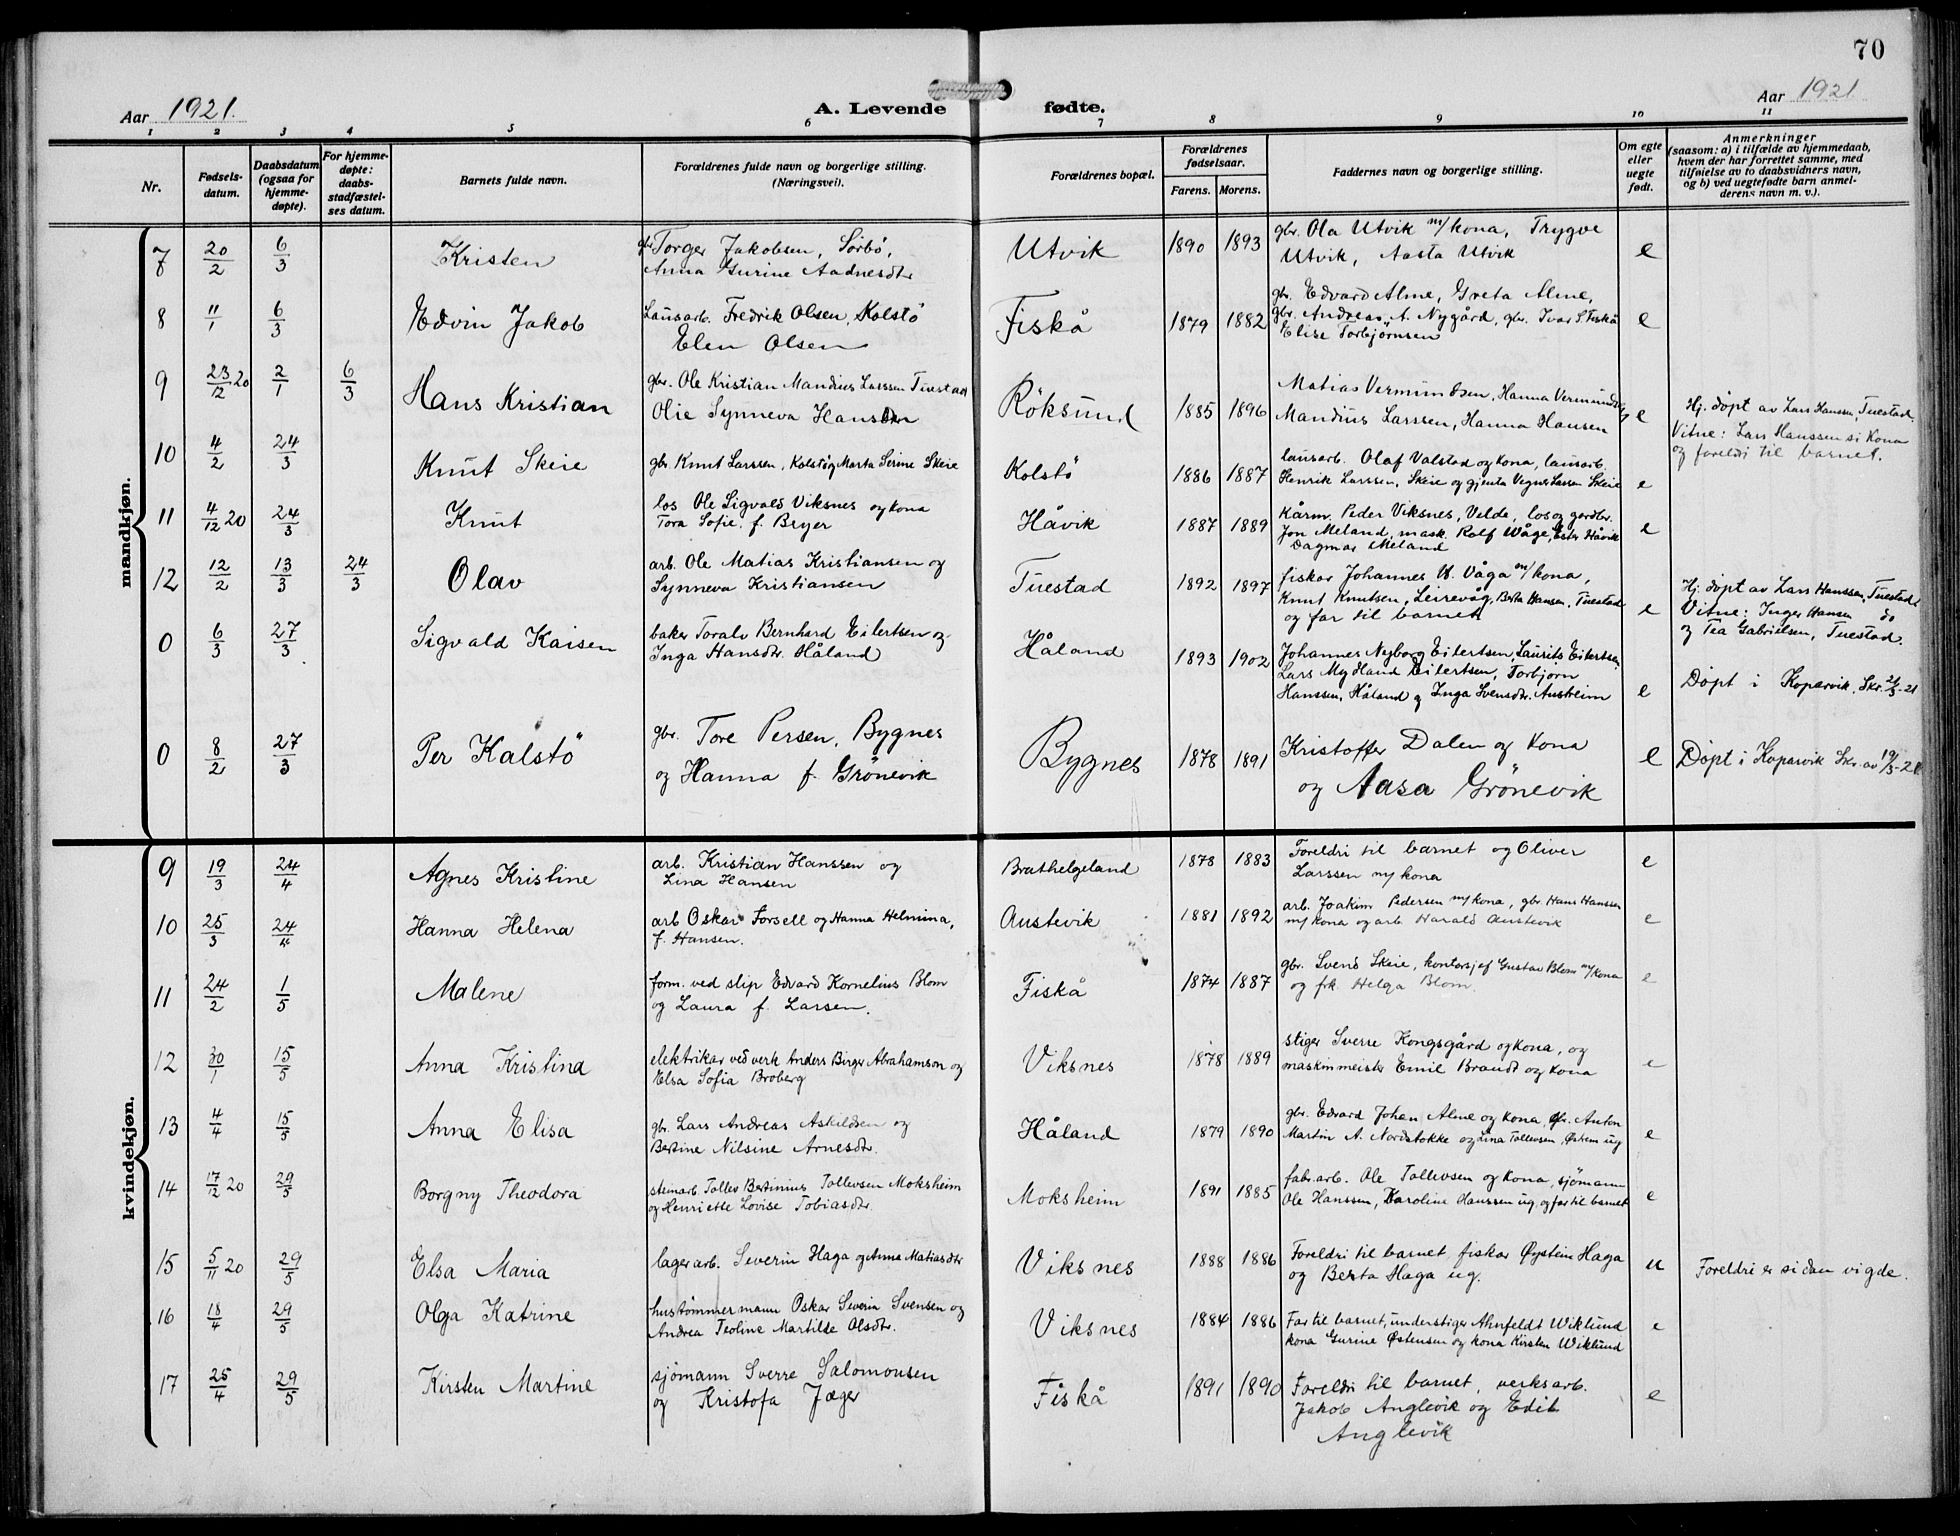 70
Aar 1921.
A. Levende fødte.
Aar 1921
1 2 3 4 5 6 7 8 9 10 11
Nr.
Fødsels-
datum.
Daabsdatum
(ogsaa for
hjemme-
døpte).
For hjemme-
døpte:
daabs-
stadfæstel-
ses datum.
Barnets fulde navn.
Forældrenes fulde navn og borgerlige stilling.
(Næringsvei).
Forældrenes bopæl.
Forældrenes
fødselsaar.
Farens. Morens.
Faddernes navn og borgerlige stilling.
Om egte
eller
uegte
født.
Anmerkninger
(saasom: a) i tilfælde av hjemmedaab,
hvem der har forrettet samme, med
tilføielse av to daabsvidners navn,
og b) ved uegtefødte barn anmel-
derens navn m. v.).
mandkjøn.
7 20/2 6/3 Kristen
gbr Torger Jakobsen, Sørbø,
Anna Gurine Aadnesdtr
Utvik 1890 1893
gbr. Ola Utvik m/kona, Trygve
Utvik, Aasta Utvik
e
8 11/1 6/3 Edvin Jakob
Lausarb. Fredrik Olsen, Kolstö
Elen Olsen
Fiskå 1879 1882
gbr. Edvard Alme, Greta Alme,
gbr. Andreas A. Nygård, gbr. Ivar S. Fiskå
Elise Torbjørnsen
e
9 23/12 20 2/1 6/3 Hans Kristian
gbr. Ole Kristian Mandius Larssen Tuestad
Olie Synneva Hansdtr
Röksund 1885 1896
Matias Vermundsen, Hanna Vermundsen
Mandius Larssen, Hanna Hansen
e
Hj. døpt av Lars Hanssen, Tuestad.
Vitne: Lars Hanssen si kona
og foreldri til barnet.
10 4/2 24/3 Knut Skeie
gbr. Knut Larssen, Kolstø og Marta Serine Skeie
Kolstö 1886 1887
lausarb. Olaf Valstad og kona, lausarb.
Henrik Larssen, Skeie og gjenta Vegner Larsen Skeie
e
11 4/12 20 24/3 Knut
los Ole Sigvald Viksnes og kona
Tora Sofie, f. Beyer
Håvik 1887 1889
Kårm. Peder Viksnes, Velde, los og gardbr.
Jon Meland, mask. Rolf Wåge, Ester Håvik
Dagmar Meland
e
12 12/2 13/3 24/3 Olav
arb. Ole Matias Kristiansen og
Synneva Kristiansen
Tuestad 1892 1897
fiskar Johannes W. Våga m/kona,
Knut Knutsen, Leirevåg, Berta Hansen, Tuestad
og far til barnet
e
Hj. døpt av Lars Hanssen, Tuestad
Vitne: Inger Hansen do
og Tea Gabrielsen, Tuestad.
0 6/3 27/3 Sigvald Kaisen
baker Toralv Bernhard Eilertsen og
Inga Hansdtr. Håland
Håland 1893 1902
Johannes Nyborg Eilertsen, Laurits Eilertsen,
Lars Myhland Eilertsen, Torbjørn
Hanssen, Håland og Inga Svensdtr. Austreim
e
Døpt i Kopervik. Skr. 21/3-21
0 8/2 27/3 Per Kalstö
gbr. Tore Persen, Bygnes
og Hanna f. Grönevik
Bygnes 1878 1891
Kristoffer Dalen og kona
og Aasa Grönevik
e
Døpt i Kopervik Skr. av 19/3-21
kvindekjøn.
9 19/3 24/4 Agnes Kristine
arb. Kristian Hanssen og
Lina Hansen
Brathelgeland 1878 1883
Foreldri til barnet og Oliver
Larssen m/kona
e
10 25/3 24/4 Hanna Helena
arb Oskar Forsell og Hanna Helmina,
f. Hansen.
Austevik 1881 1892
arb. Joakim Pedersen m/kona, gbr. Hans Hanssen
m/kona og arb Harald Austevik
e
11 24/2 1/5 Malene
form. ved slip Edvard Kornelius Blom
og Laura f. Larsen.
Fiskå 1874 1887
gbr. Svend Skeie, kontorsjef Gustav Blom m/kona
og frk. Helga Blom.
e
12 30/1 15/5 Anna Kristina
elektrikar ved verk Anders Birger Abrahamson og
Elsa Sofia Broberg
Viksnes 1878 1889
stiger Sverre Kongsgård og kona, og
maskinmeister Emil Brandt og kona
e
13 4/4 15/5 Anna Elisa
gbr. Lars Andreas Askildsen og
Bertine Nilsine Arnesdtr.
Håland 1879 1890
gbr. Edvard Johan Alme og kona, gbr. Anton
Martin A. Nordstokke og Lina Tollevsen, Østrem ug
e
14 17/12 20 29/5 Borgny Theodora
steinarb. Tollev Bertinius Tollevsen Moksheim
og Henriette Lovise Tobiasdtr.
Moksheim 1891 1885
fabr.arb. Ole Tollevsen og kona, sjömann
Ole Hanssen, Karoline Hanssen ug. og far til barnet
e
15 5/11 20 29/5 Elsa Maria
lagerarb. Severin Haga og Anna Matiasdtr
Viksnes 1888 1886
Foreldri til barnet, fiskar Øystein Haga
og Berta Haga ug.
u
Foreldri er sidan vigde.
16 18/4 29/5 Olga Katrine
hustømmermann Oskar Severin Svensen og
Andrea Teoline Martilde Olsdtr.
Viksnes 1884 1886
Far til barnet, understiger Ahnfeldt Wiklund
kona Gurine Østensen og kona Kirsten Wiklund
e
17 25/4 29/5 Kirsten Martine
sjømann Sverre Salomonsen
og Kristofa Jæger
Fiskå 1891 1890
Foreldri til barnet, verksarb.
Jakob Anglevik og Edit
Anglevik
e